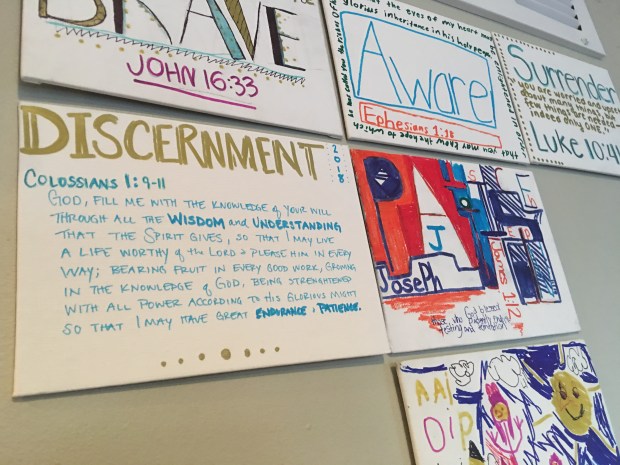 BRAVE
JOHN 16:33
Aware
Ephesians 1:18
glorious inheritance in his holy people
that you may know the hope to which
he has called you
Surrender
you are worried and upset
about many things, but
few things are needed
indeed only ONE."
Luke 10:41
DISCERNMENT
2018
COLOSSIANS 1:9-11
GOD, FILL ME WITH THE KNOWLEDGE of YOUR WILL
THROUGH ALL THE WISDOM and UNDERSTANDING
THAT THE SPIRIT GIVES, SO THAT I MAY LIVE
A LIFE WORTHY of the LORD & PLEASE HIM IN EVERY
WAY; BEARING FRUIT IN EVERY GOOD WORK, GROWING
IN THE KNOWLEDGE of GOD, BEING STRENGTHENED
WITH ALL POWER ACCORDING to HIS GLORIOUS MIGHT
SO THAT I MAY HAVE GREAT ENDURANCE & PATIENCE.
J
Joseph
James 1:12
God blesses